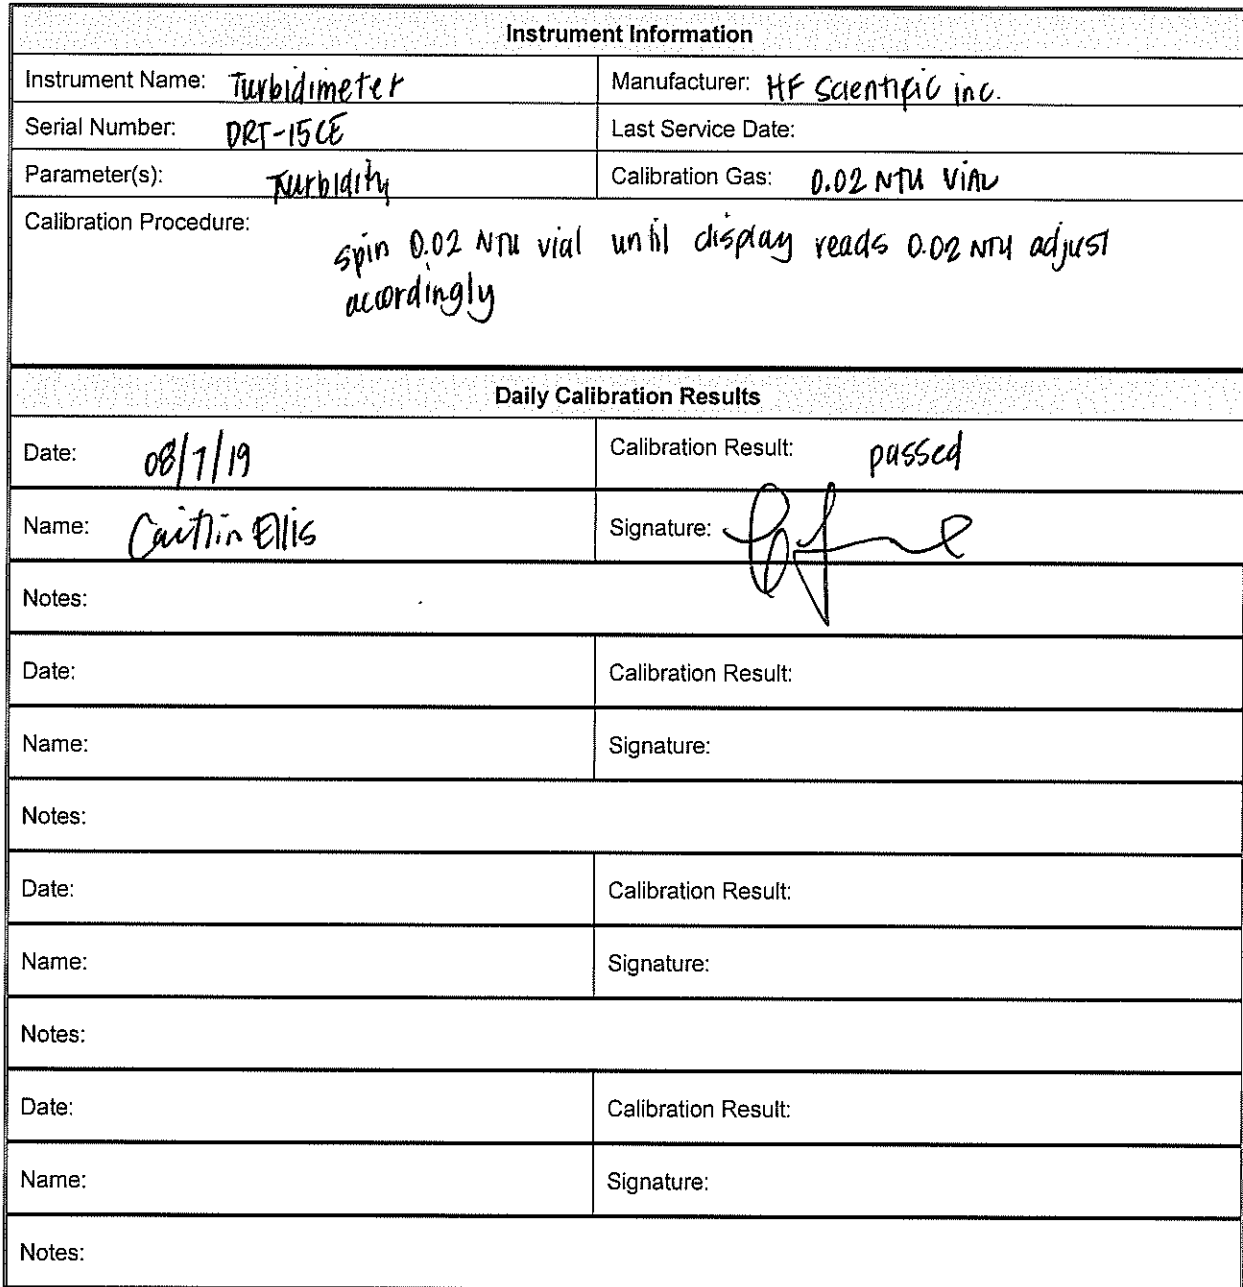 Instrument Information
Instrument Name: Turbidimeter Manufacturer: HF Scientific inc.
Serial Number: DRT-15CE Last Service Date:
Parameter(s): Turbidity Calibration Gas: 0.02 NTU VIAL
Calibration Procedure:
spin 0.02 NTU vial until display reads 0.02 NTU adjust
accordingly
Daily Calibration Results
Date: 08/7/19 Calibration Result: passed
Name: Caitlin Ellis Signature:
Notes:
Date: Calibration Result:
Name: Signature:
Notes:
Date: Calibration Result:
Name: Signature:
Notes:
Date: Calibration Result:
Name: Signature:
Notes: